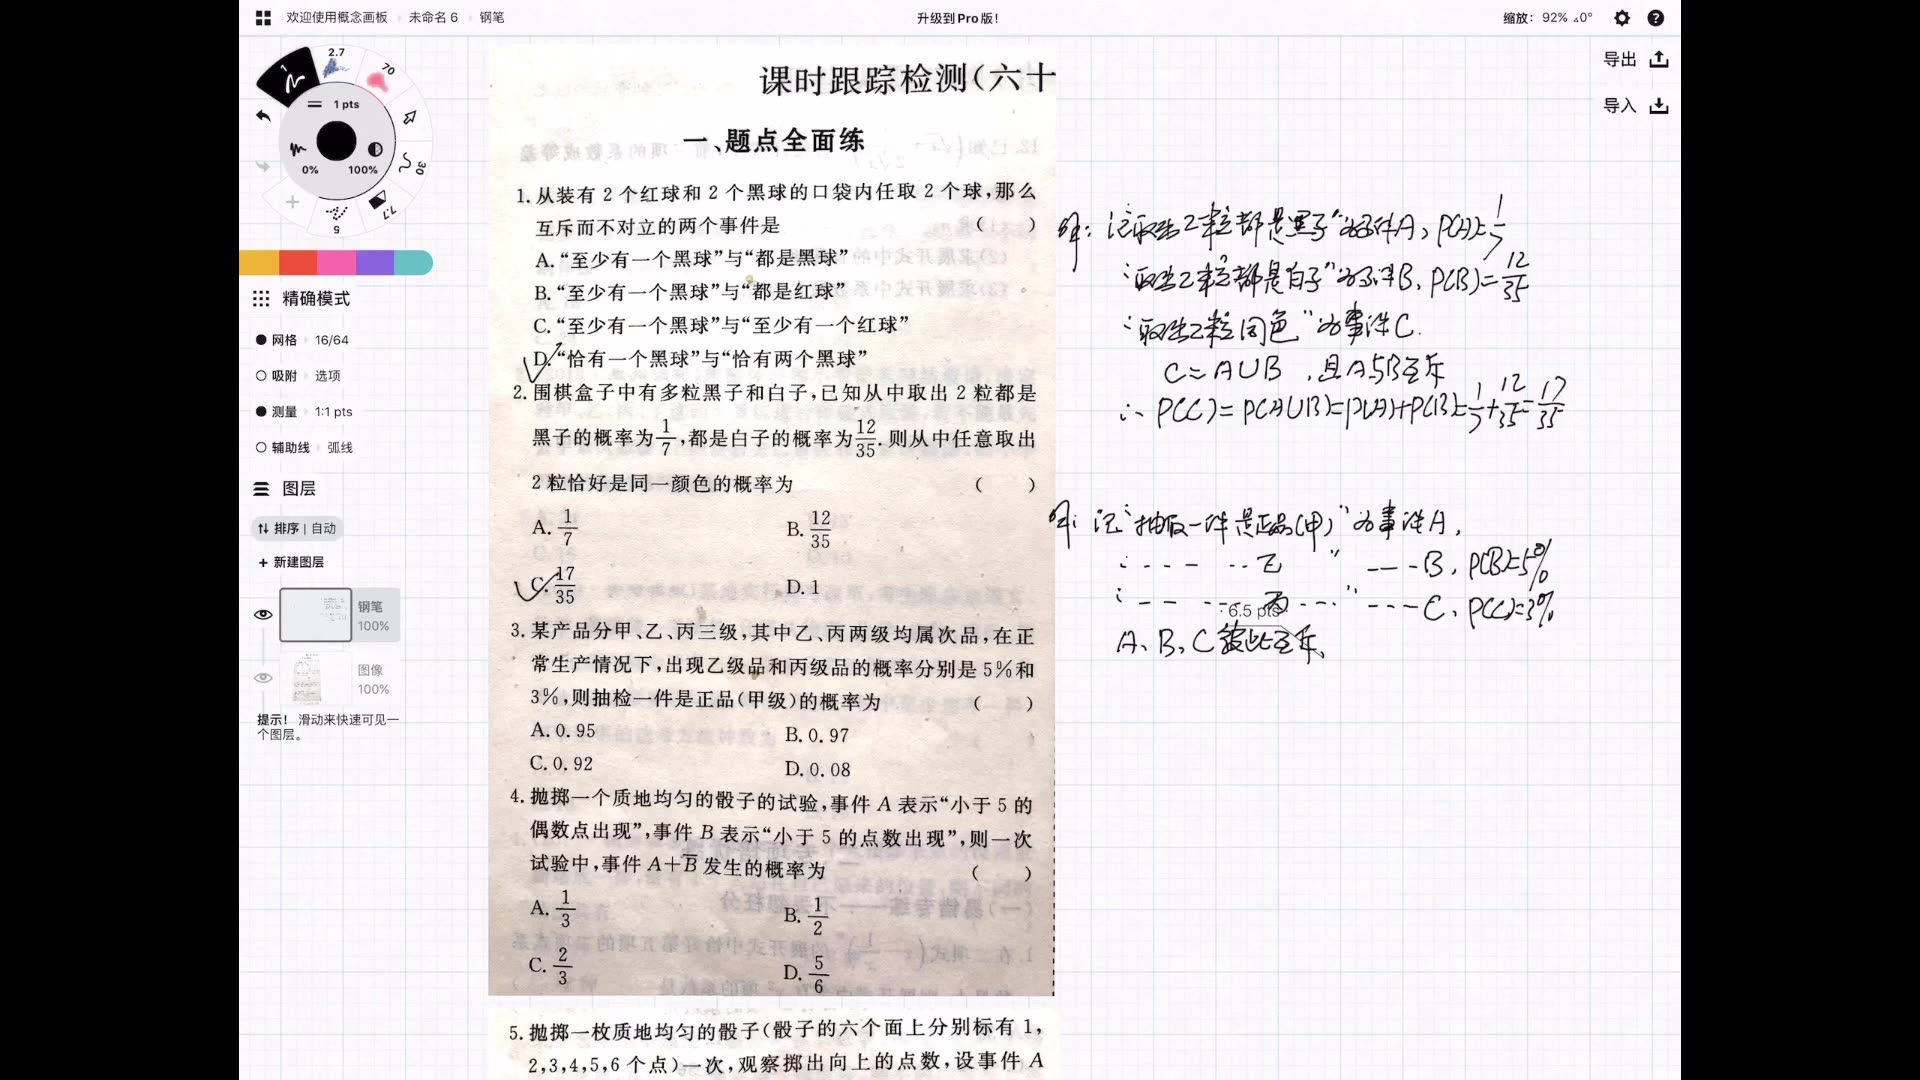 欢迎使用概念画板 › 未命名 6 › 钢笔
升级到Pro版!
缩放: 92% ⊿0°
导出
导入
2.7
70
1
1 pts
0%
100%
30
7.7
6
精确模式
网格 › 16/64
吸附 › 选项
测量 › 1:1 pts
辅助线 › 弧线
图层
排序 | 自动
+ 新建图层
钢笔
100%
图像
100%
提示! 滑动来快速可见一
个图层。
课时跟踪检测(六十
一、题点全面练
1. 从装有 2 个红球和 2 个黑球的口袋内任取 2 个球,那么
互斥而不对立的两个事件是 ( )
A. “至少有一个黑球”与“都是黑球”
B. “至少有一个黑球”与“都是红球”
C. “至少有一个黑球”与“至少有一个红球”
D. “恰有一个黑球”与“恰有两个黑球”
2. 围棋盒子中有多粒黑子和白子,已知从中取出 2 粒都是
黑子的概率为1/7,都是白子的概率为12/35.则从中任意取出
2 粒恰好是同一颜色的概率为 ( )
A. 1/7 B. 12/35
C. 17/35 D. 1
3. 某产品分甲、乙、丙三级,其中乙、丙两级均属次品,在正
常生产情况下,出现乙级品和丙级品的概率分别是 5%和
3%,则抽检一件是正品(甲级)的概率为 ( )
A. 0.95 B. 0.97
C. 0.92 D. 0.08
4. 抛掷一个质地均匀的骰子的试验,事件 A 表示“小于 5 的
偶数点出现”,事件 B 表示“小于 5 的点数出现”,则一次
试验中,事件 A+B̅ 发生的概率为 ( )
A. 1/3 B. 1/2
C. 2/3 D. 5/6
5. 抛掷一枚质地均匀的骰子(骰子的六个面上分别标有 1,
2,3,4,5,6 个点)一次,观察掷出向上的点数,设事件 A
解: 记“取出2粒都是黑子”为事件A, P(A)=1/7
“取出2粒都是白子”为事件B, P(B)=12/35
“取出2粒同色”为事件C.
C=A∪B ,且A与B互斥
∴ P(C)=P(A∪B)=P(A)+P(B)=1/7+12/35=17/35
解: 记“抽取一件是正品(甲)”为事件A,
“---- ‥乙 ” ---B, P(B)=5%
“-- --- 丙 --- ” ---C, P(C)=3%
6.5 pts
A、B、C彼此互斥、